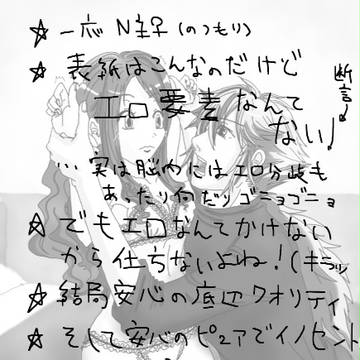 ☆一応N主♀(のつもり)
☆表紙はこんなのだけど
エロ要素なんて
ない!
断言
…実は脳内にはエロ分岐も
あったり何だりゴニョゴニョ
☆でもエロなんてかけない
から仕方ないよね!(キラッ
☆結局安心の底辺クオリティ
☆そして安心のピュアでイノセント